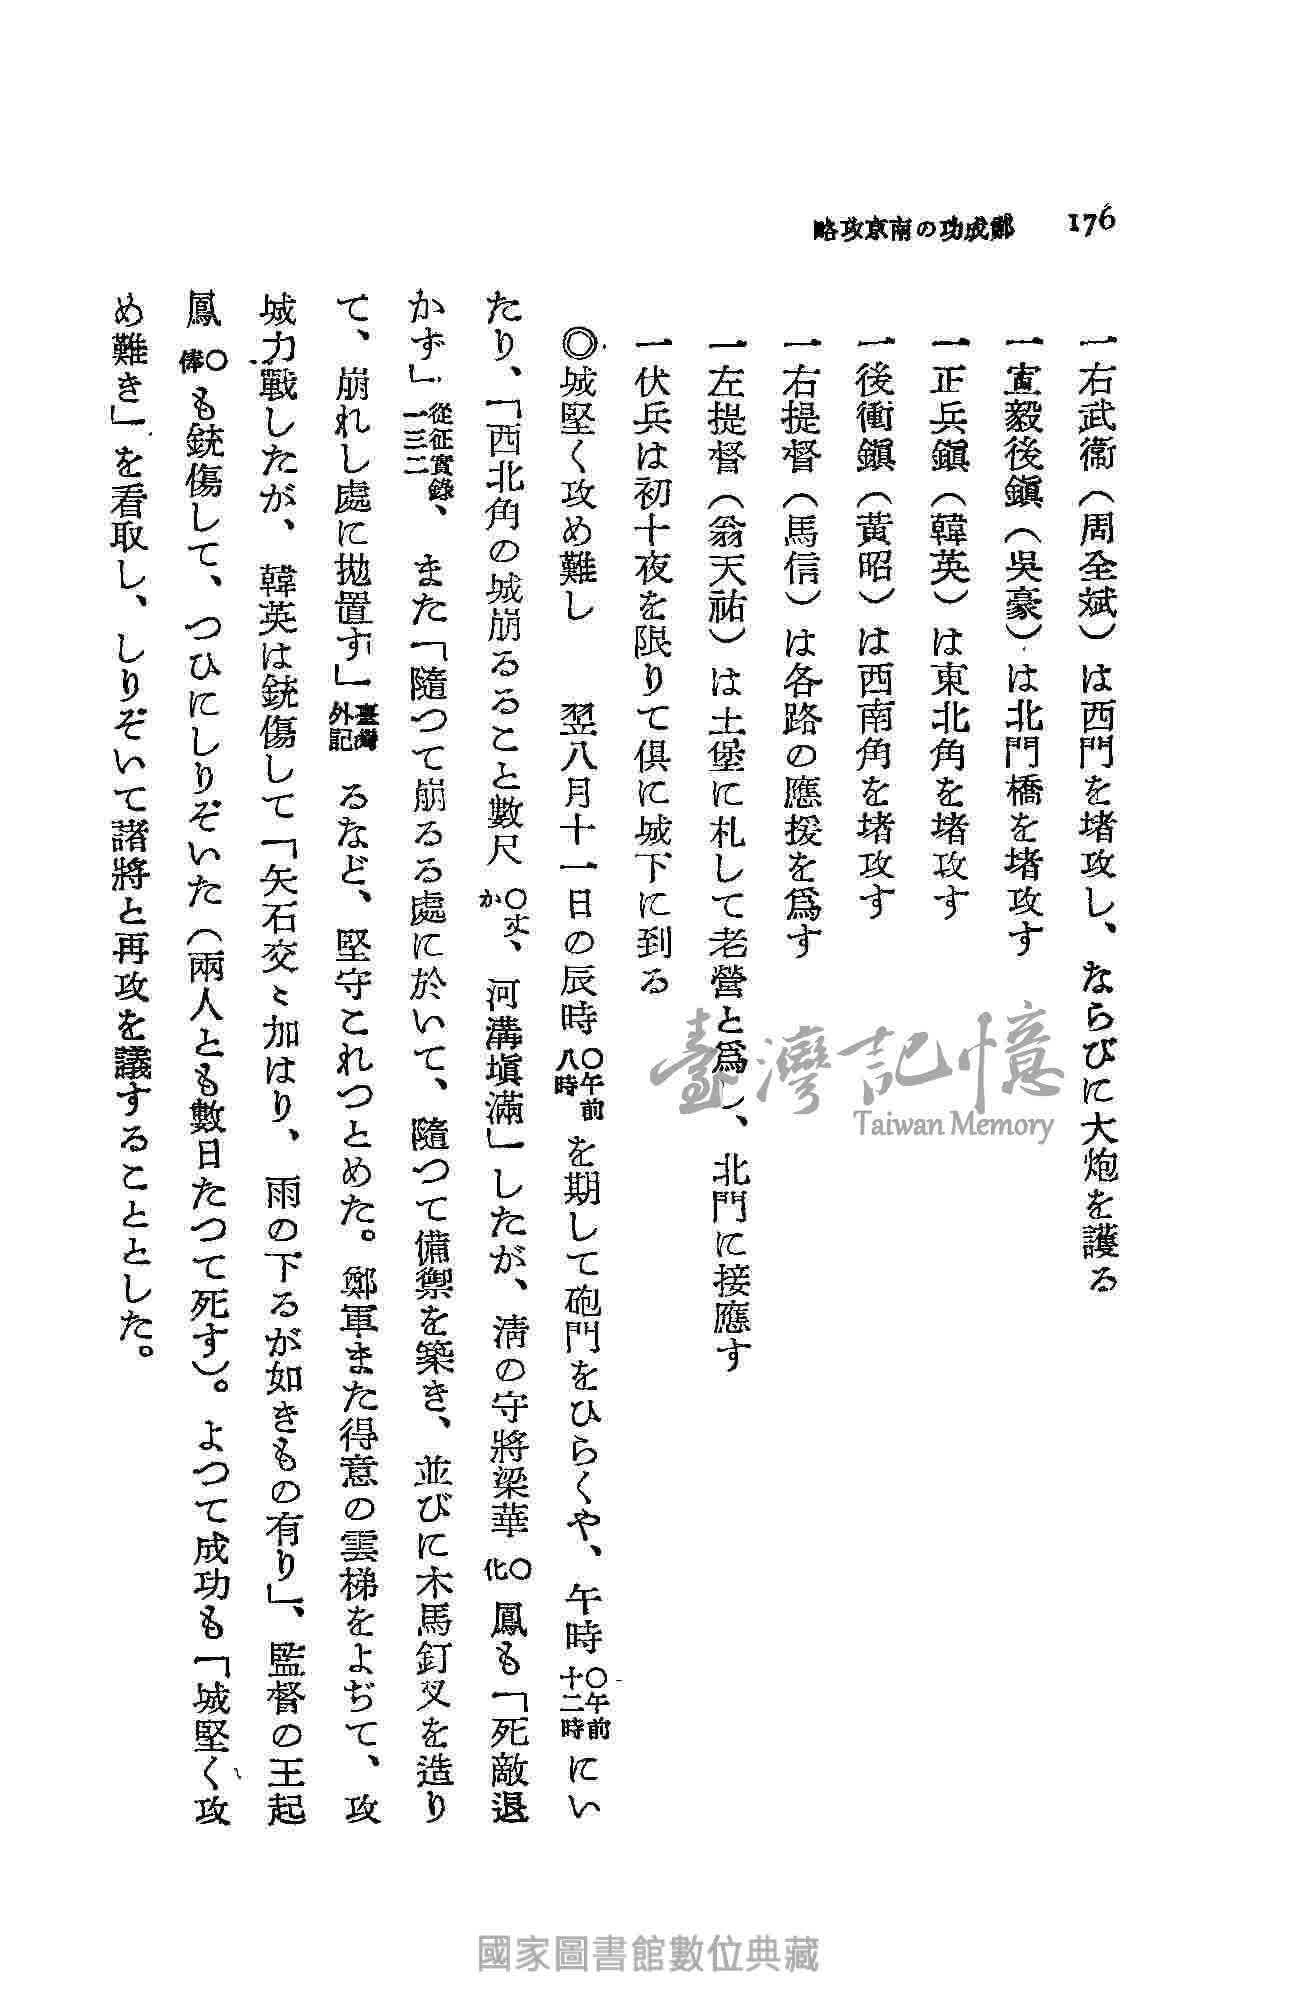 176
鄭成功の南京攻略
一右武衞（周全斌）は西門を堵攻し、ならびに大炮を護る
一宣毅後鎭（吳豪）は北門橋を堵攻す
一正兵鎭（韓英）は東北角を堵攻す
一後衝鎭（黃昭）は西南角を堵攻す
一右提督（馬信）は各路の應援を爲す
一左提督（翁天祐）は土堡に札して老營と爲し、北門に接應す
一伏兵は初十夜を限りて倶に城下に到る
◎城堅く攻め難し　翌八月十一日の辰時〇午前八時を期して砲門をひらくや、午時〇午前十二時にい
たり、「西北角の城崩るること數尺〇丈か、河溝塡滿」したが、淸の守將梁華〇化鳳も「死敵退
かず」從征實錄一三二、また「隨つて崩るる處に於いて、隨つて備禦を築き、並びに木馬釘叉を造り
て、崩れし處に拋置す」臺灣外記るなど、堅守これつとめた。鄭軍また得意の雲梯をよぢて、攻
城力戰したが、韓英は銃傷して「矢石交〻加はり、雨の下るが如きもの有り」、監督の王起
鳳〇俸も銃傷して、つひにしりぞいた（兩人とも數日たつて死す）。よつて成功も「城堅く攻
め難き」を看取し、しりぞいて諸將と再攻を議することとした。
臺灣記憶
Taiwan Memory
國家圖書館數位典藏